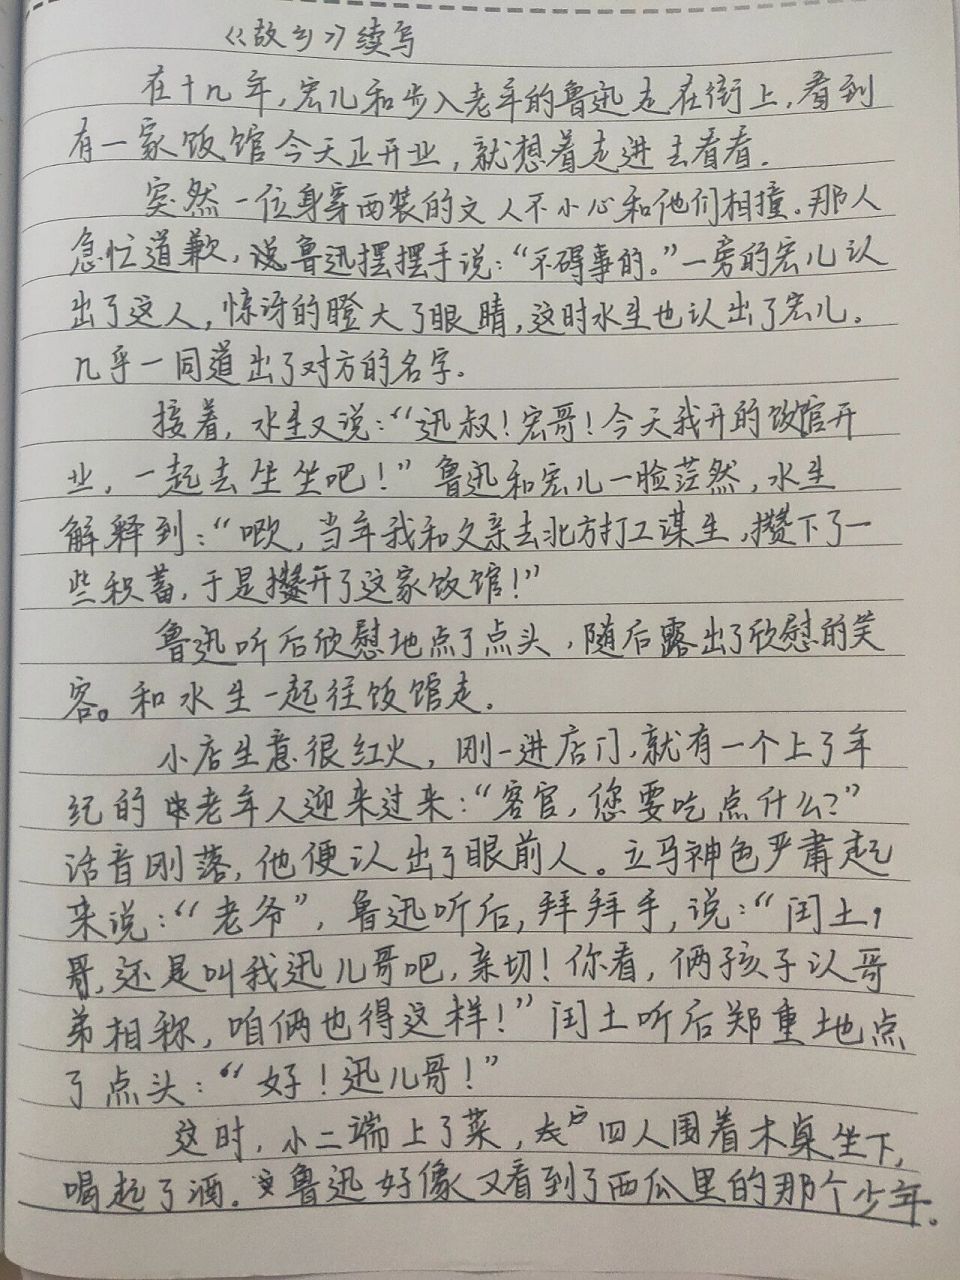 《故乡》续写
在十几年,宏儿和步入老年的鲁迅走在街上,看到
有一家饭馆今天正开业,就想着走进去看看.
突然一位身穿西装的文人不小心和他们相撞.那人
急忙道歉,说鲁迅摆摆手说:“不碍事的。”一旁的宏儿认
出了这人,惊讶的瞪大了眼睛,这时水生也认出了宏儿。
几乎一同道出了对方的名字.
接着,水生又说:“迅叔!宏哥!今天我开的饭馆开
业,一起去坐坐吧!”鲁迅和宏儿一脸茫然,水生
解释到:“噢,当年我和父亲去北方打工谋生,攒下了一
些积蓄,于是开了这家饭馆!”
鲁迅听后欣慰地点了点头,随后露出了欣慰的笑
容。和水生一起往饭馆走.
小店生意很红火,刚一进店门,就有一个上了年
纪的老年人迎来过来:“客官,您要吃点什么?”
话音刚落,他便认出了眼前人。立马神色严肃起
来说:“老爷”,鲁迅听后,拜拜手,说:“闰土,
哥,还是叫我迅儿哥吧,亲切!你看,俩孩子认哥
弟相称,咱俩也得这样!”闰土听后郑重地点
了点头:“好!迅儿哥!”
这时,小二端上了菜,四人围着木桌坐下,
喝起了酒.鲁迅好像又看到了西瓜里的那个少年.